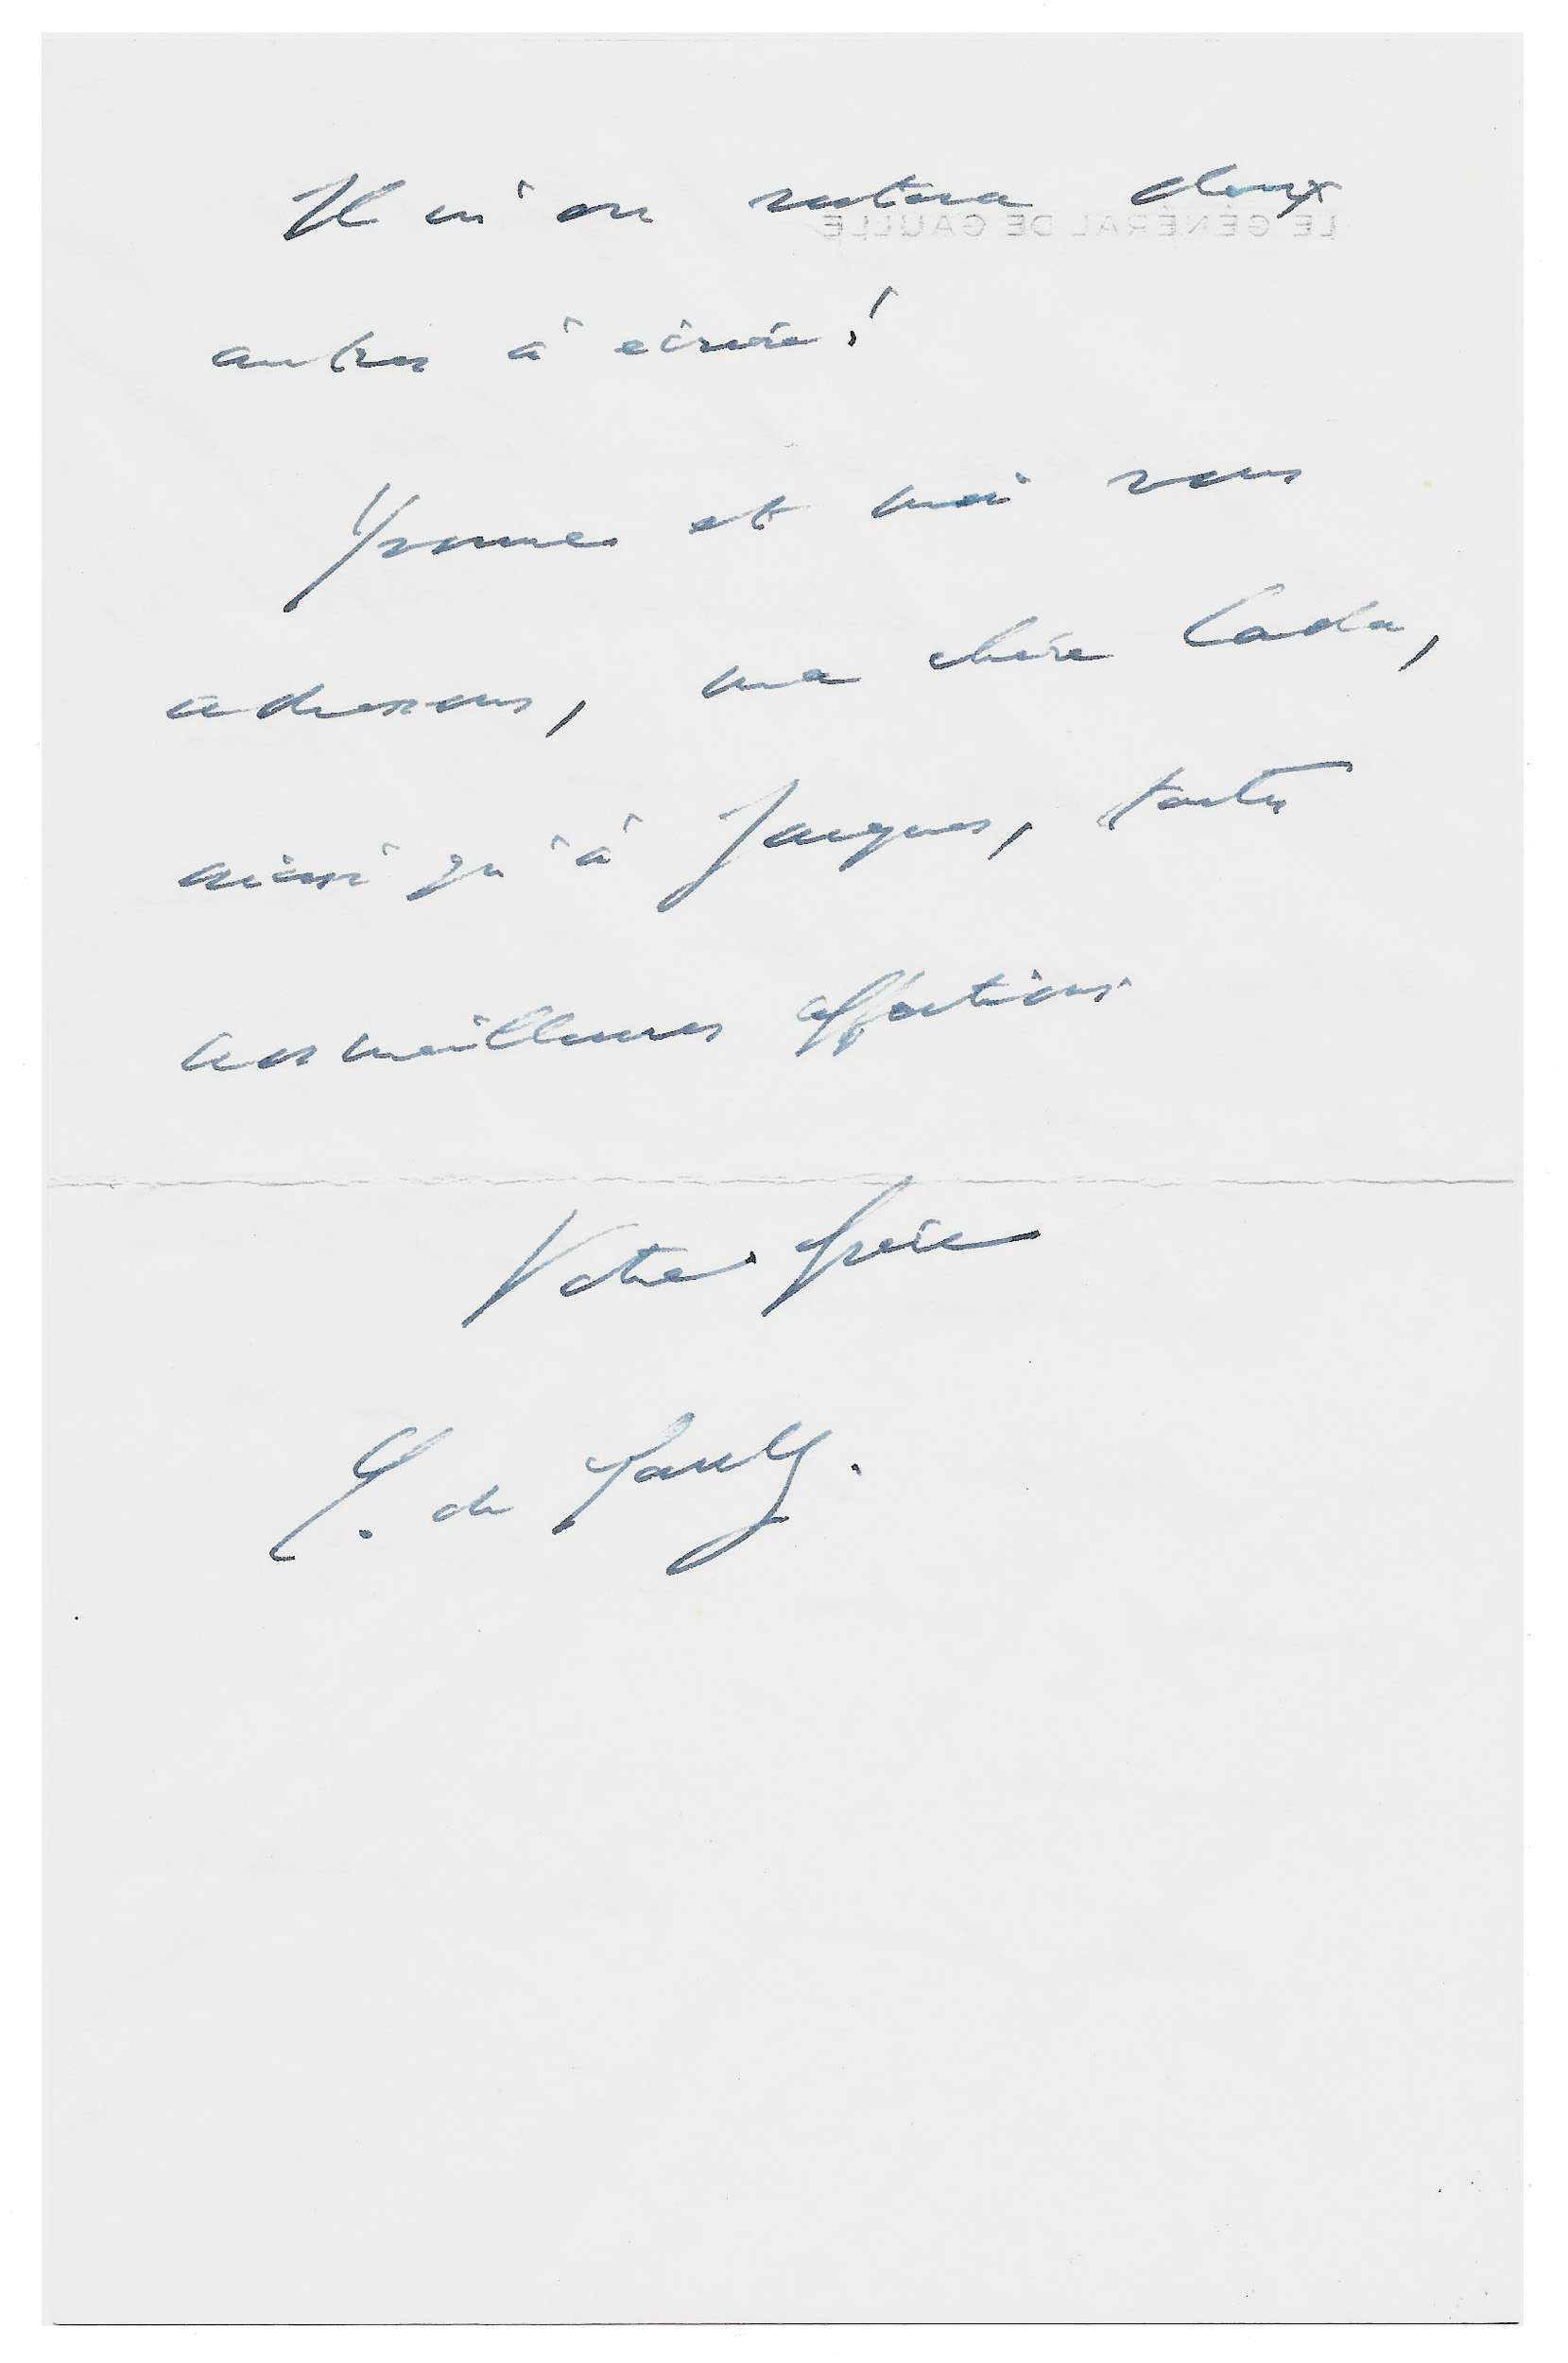 Il m'en restera deux
LE GÉNÉRAL DE GAULLE
autres à écrire!
Yvonne et moi vous
adressons, ma chère Cada,
ainsi qu'à Jacques, toutes
nos meilleures affections.
Votre frère
C. de Gaulle.